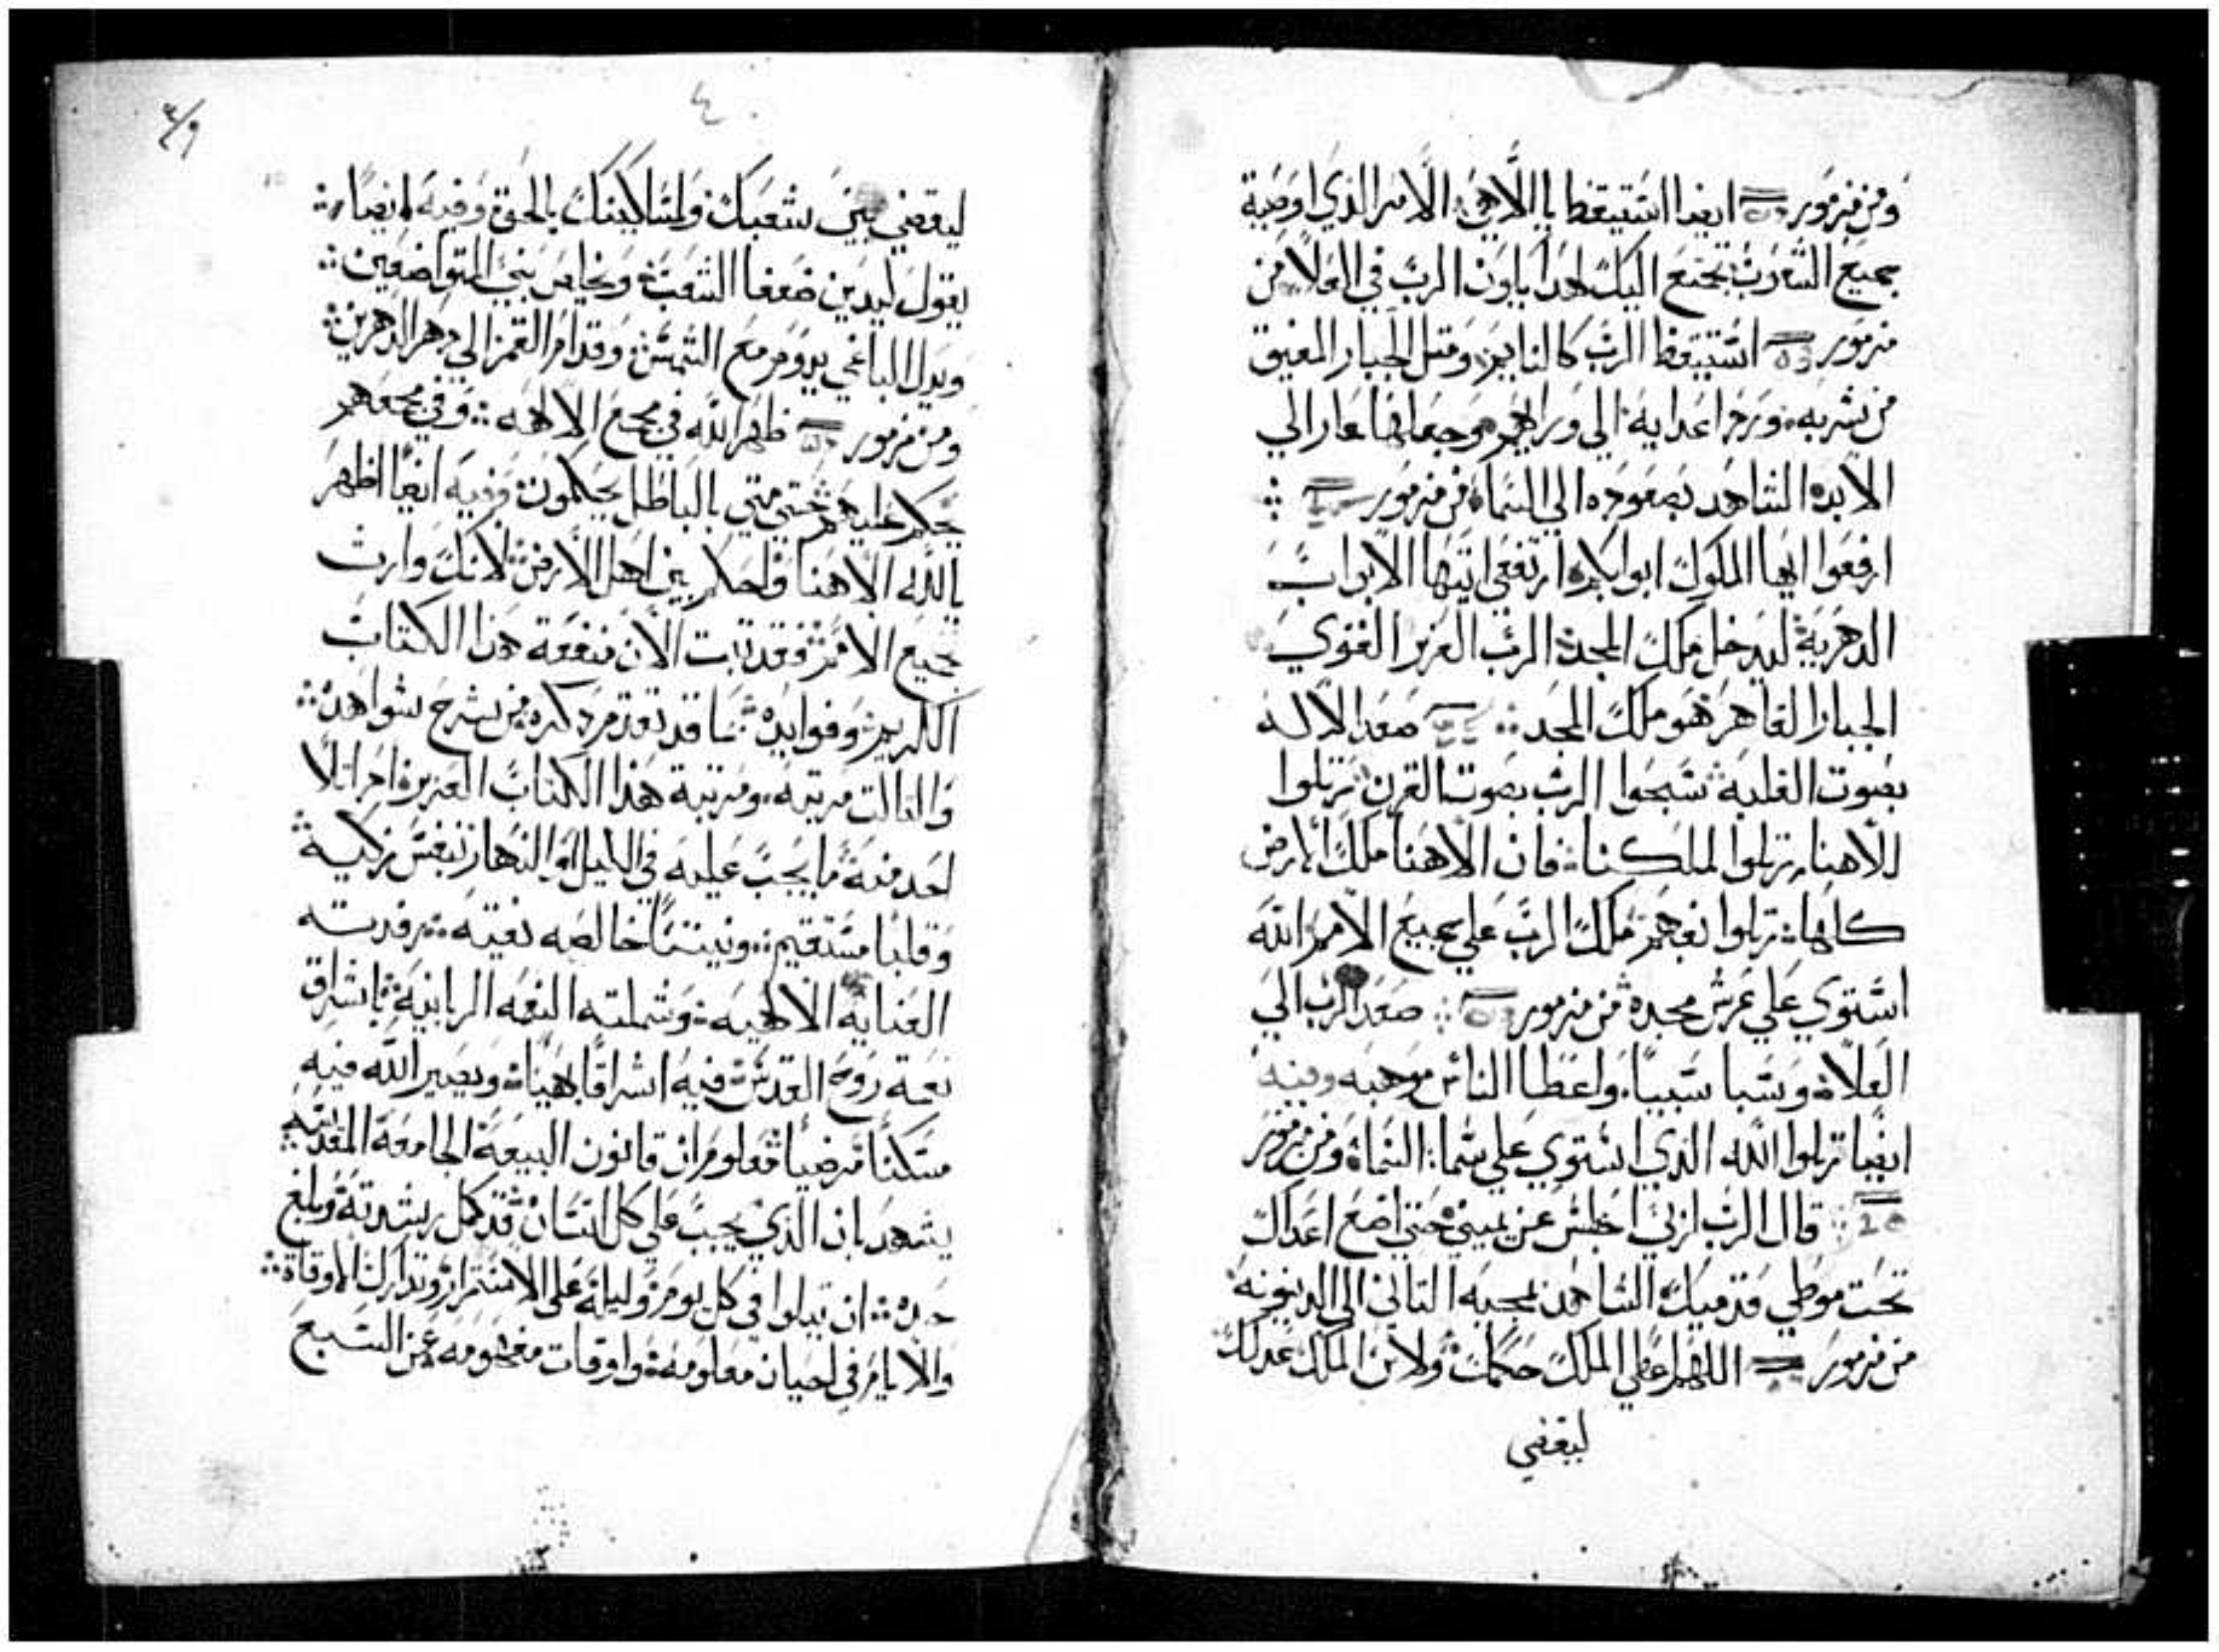 ومن مزمور ايضا استيقظ يا الاهي الامر الذي اوصية
جميع الشعوب تجتمع اليك لهدا ياون الرب في العلا من
مزمور استيقظ الرب كالنايم ومتل الجبار المفيق
من شربه ورد اعدايه الي وراهم وجعلها عار الي
الابد الشاهد بصعوده الي السما من مزمور
ارفعوا ايها الملوك ابوابكم ارتفعي ايتها الابواب
الدهرية ليدخل ملك المجد الرب العزيز القوي
الجبار القاهر هو ملك المجد صعد الاله
بصوت الغلبة سبحوا الرب بصوت القرن رتلوا
للاهنا رتلوا لملكنا فان الاهنا ملك الارض
كلها رتلوا بفهم ملك الرب علي جميع الامم الله
استوي علي عرش مجده من مزمور صعد الرب الي
العلا وسبا سبيا واعطا الناس موهبه وفيه
ايضا رتلوا الله الذي استوي علي سما السما ومن مزمور
قال الرب لربي اجلس عن يميني حتي اضع اعداك
تحت موطي قدميك الشاهد بمجيه التاني الي الدينونه
من مزمور اللهم اعطي الملك حكمك ولابن الملك عدلك
ليقضي
٤
ليقضي بين شعبك ولمساكينك بالحق وفيه ايضا
يقول ليدين ضعفا الشعب ويخلص بني المتواضعين
ويدل الباغي يدوم مع الشمس وقدام القمر الي دهر الداهرين
ومن مزمور ظهر الله في مجمع الالهه وفي مجمعهم
يحكم عليهم حتي متي بالباطل يحكمون وفيه ايضا اظهر
يالله الاهنا واحكم بين اهل الارض لانك وارت
جميع الامم فقد تبت الان منفعة هذا الكتاب
الكريم وفوايده بما قد تقدم دكره من شرح شواهده
والتالت مرتبه ومرتبة هذا الكتاب العزيز ادا تلا
احد منه ما يجب عليه في الليل او النهار بنفس زكية
وقلبا مستقيم ونيتا خالصه نقيه رفدته
العناية الالهيه وشملته النعمه الربانية باشراق
نعمة روح القدس فيه اشراقا بهيا ويصير الله فيه
مسكنا مرضيا معلوم ان قانون البيعة الجامعة المقدسه
يشهد بان الذي يجب علي كل انسان قد كمل رشدته وبلغ
حده ان يتلوا في كل يوم وليلة علي الاستمرار وتدارك الاوقات
والايام في احيان معلومة واوقات مفهومه عن السبع